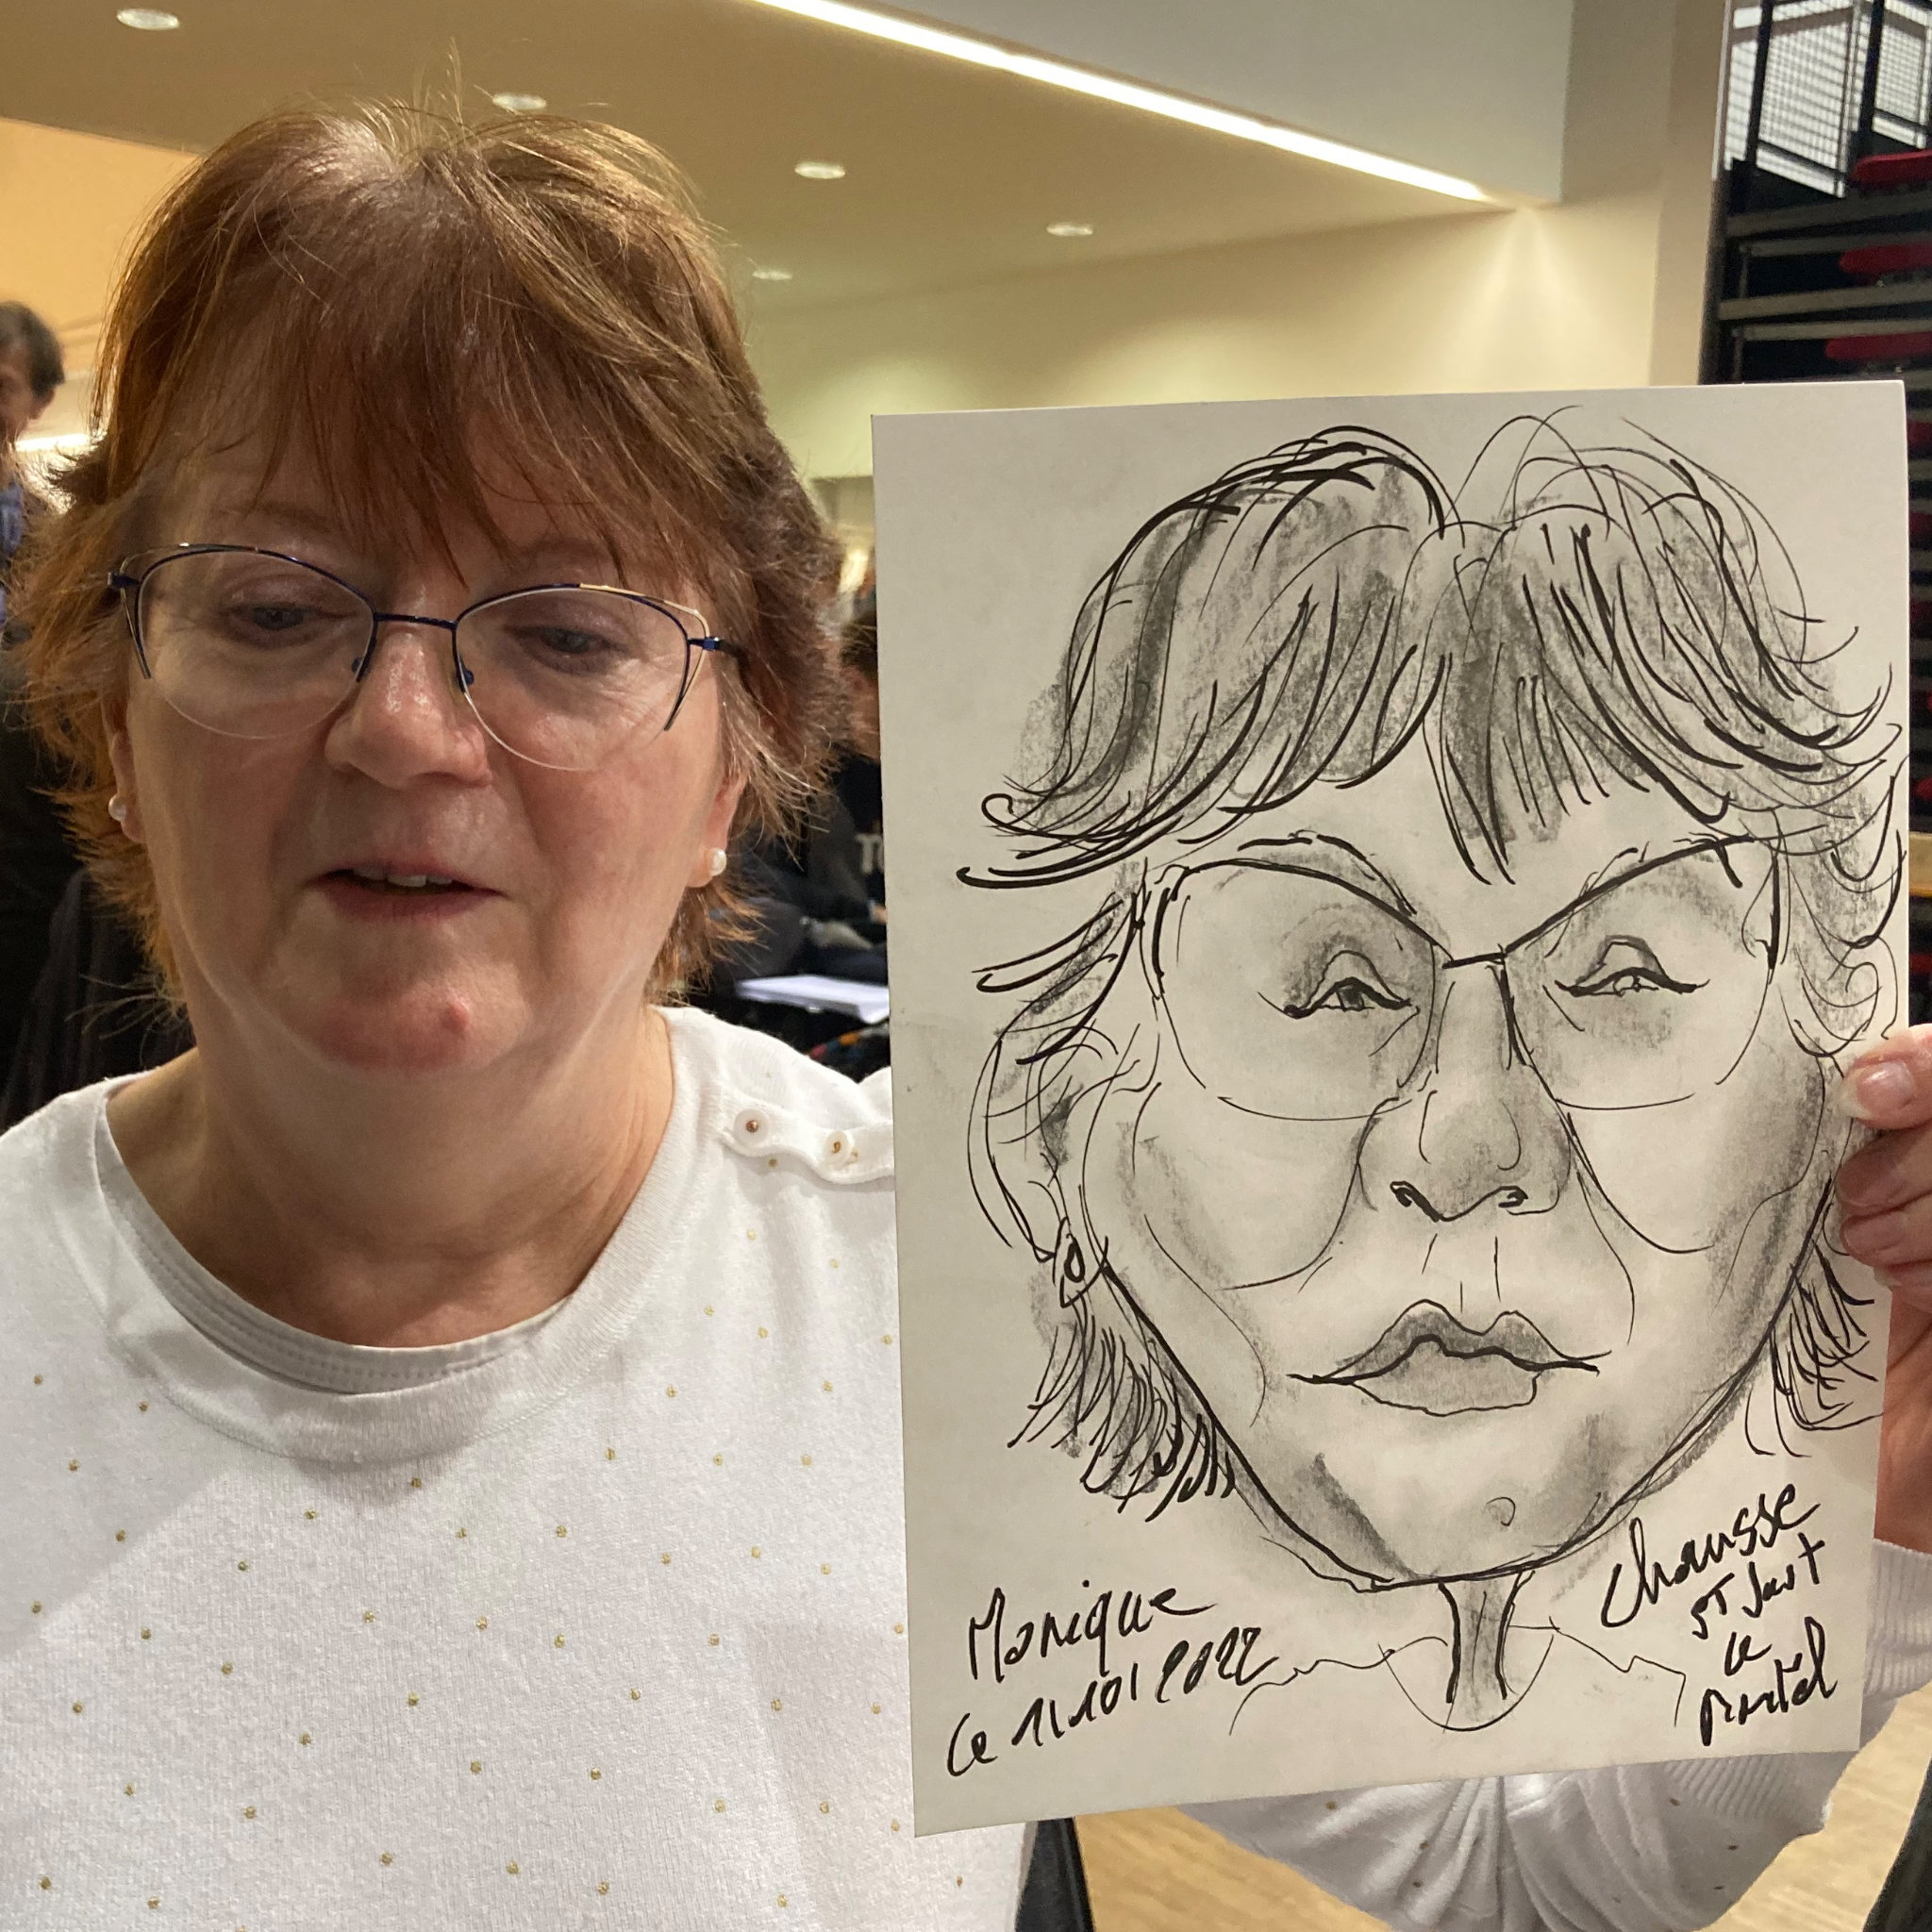 Monique
Le 11/10/2022
Chausse
ST Just
Le
Martel